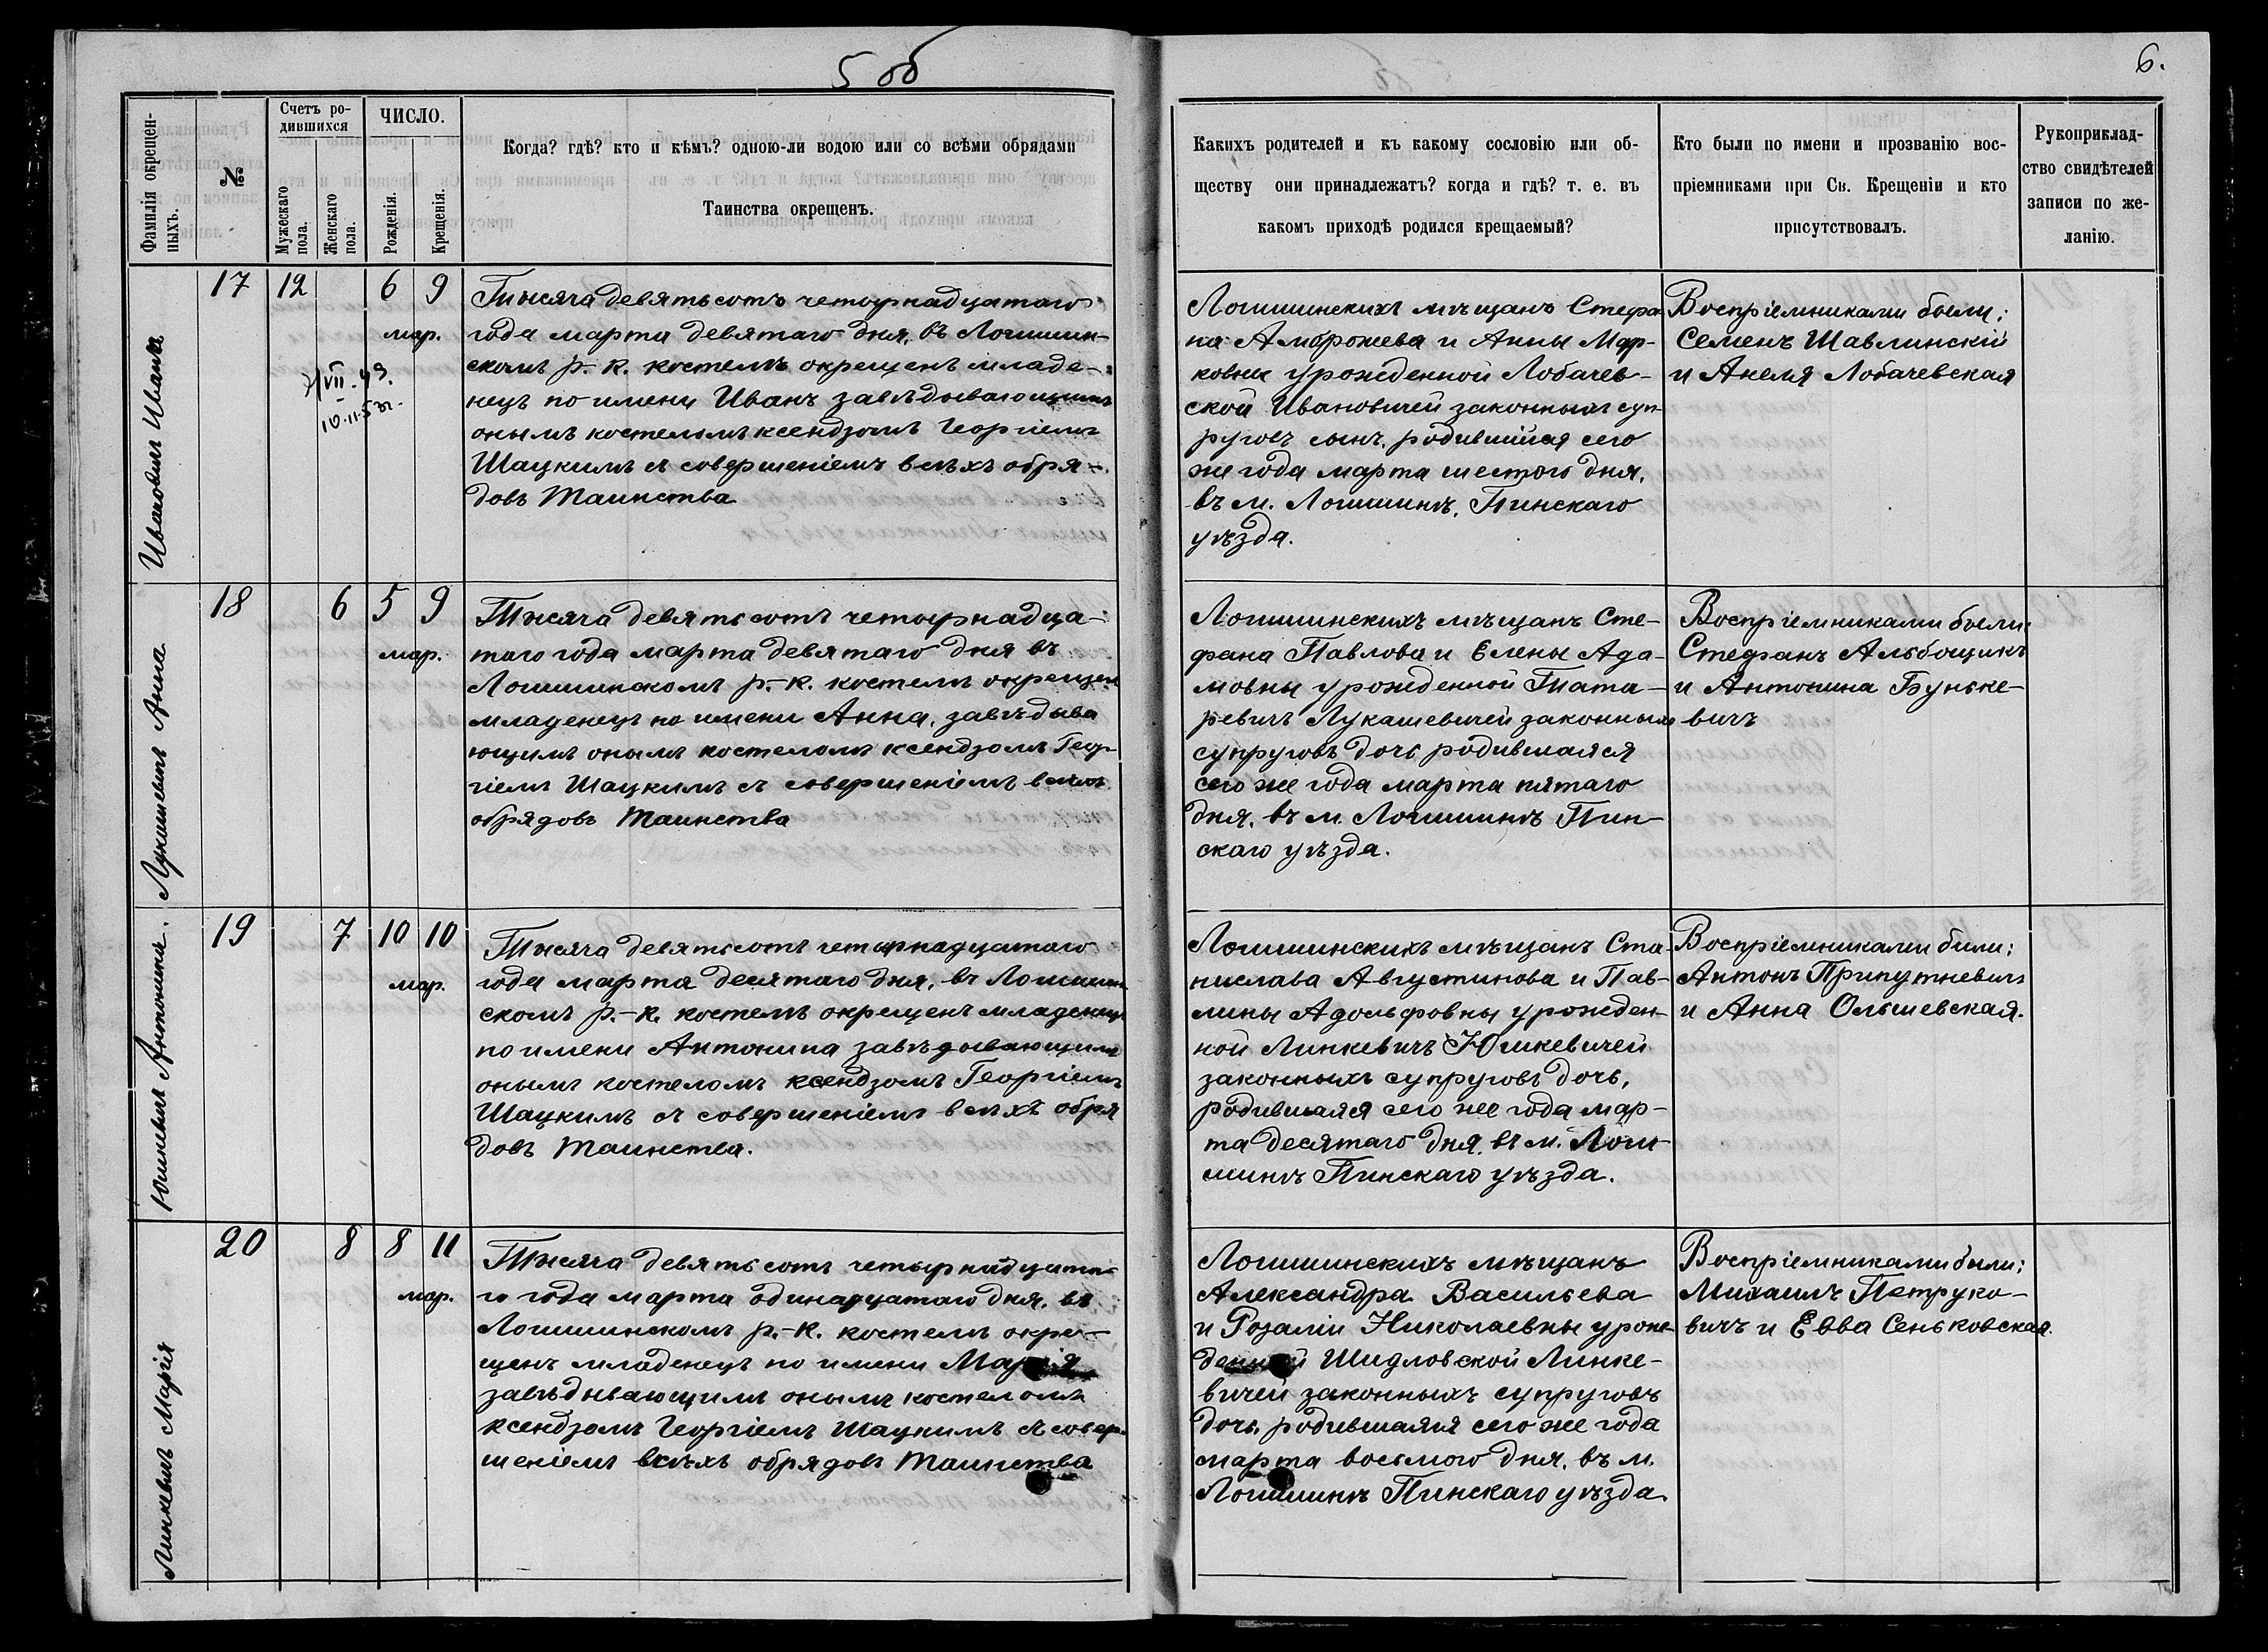 5 об
6.
Фамилія окрещен-
ныхъ.
№
Счетъ ро-
дившихся
Мужескаго
пола.
Женскаго
пола.
ЧИСЛО.
Рожденія.
Крещенія.
Когда? гдѣ? кто и кѣмъ? одною-ли водою или со всѣми обрядами
Таинства окрещенъ.
Какихъ родителей и къ какому сословію или об-
ществу они принадлежатъ? когда и гдѣ? т. е. въ
какомъ приходѣ родился крещаемый?
Кто были по имени и прозванію вос-
пріемниками при Св. Крещеніи и кто
присутствовалъ.
Рукоприклад-
ство свидѣтелей
записи по же-
ланію.
Ивановичъ Иванъ
17 12 6 9
мар.
VII-49.
Тысяча девятьсотъ четырнадцатаго
года марта девятаго дня, въ Логишин-
скомъ р.-к. костелѣ окрещенъ младе-
нецъ по имени Иванъ завѣдывающимъ
онымъ костеломъ ксендзомъ Георгіемъ
Шацкимъ съ совершеніемъ всѣхъ обря-
довъ Таинства
Логишинскихъ мѣщанъ Стефа
на Амброжева и Анны Мар-
ковны урожденной Лобачев-
ской Ивановичей законныхъ суп-
руговъ сынъ, родившійся сего
же года марта шестого дня,
въ м. Логишинѣ, Пинскаго
уѣзда.
Воспріемниками были:
Семенъ Шавлинскій
и Анеля Лобачевская
Лукашевичъ Анна
18 6 5 9
мар.
Тысяча девятьсотъ четырнадца-
таго года марта девятаго дня въ
Логишинскомъ р.-к. костелѣ окрещен
младенецъ по имени Анна, завѣдыва
ющимъ онымъ костеломъ ксендзомъ Геор-
гіемъ Шацкимъ съ совершеніемъ всѣхъ
обрядовъ Таинства
Логишинскихъ мѣщанъ Сте-
фана Павлова и Елены Ада-
мовны урожденной Тата-
ревичъ Лукашевичей законныхъ
супруговъ дочь родившаяся
сего же года марта пятаго
дня, въ м. Логишинѣ Пин-
скаго уѣзда.
Воспріемниками были:
Стефанъ Альбощикъ
и Антонина Буньке-
вичъ
Юшкевичъ Антонина.
19 7 10 10
мар.
Тысяча девятьсотъ четырнадцатаго
года марта десятаго дня, въ Логишин
скомъ р.-к. костелѣ окрещенъ младенецъ
по имени Антонина завѣдывающимъ
онымъ костеломъ ксендзомъ Георгіемъ
Шацкимъ съ совершеніемъ всѣхъ обря
довъ Таинства.
Логишинскихъ мѣщанъ Ста-
нислава Августинова и Пав-
лины Адольфовны урожден-
ной Линкевичъ Юшкевичей
законныхъ супруговъ дочь,
родившаяся сего же года мар-
та десятаго дня, въ м. Логи-
шинѣ Пинскаго уѣзда.
Воспріемниками были:
Антонъ Припутневичъ
и Анна Ольшевская.
Линкевичъ Марія
20 8 8 11
мар.
Тысяча девятьсотъ четырнадцата-
го года марта одинадцатаго дня, въ
Логишинскомъ р.-к. костелѣ окре-
щенъ младенецъ по имени Марія
завѣдывающимъ онымъ костеломъ
ксендзомъ Георгіемъ Шацкимъ съ совер-
шеніемъ всѣхъ обрядовъ Таинства
Логишинскихъ мѣщанъ
Александра Васильева
и Розаліи Николаевны урож-
денной Шидловской Линке-
вичей законныхъ супруговъ
дочь, родившаяся сего же года
марта восьмого дня, въ м.
Логишинѣ Пинскаго уѣзда.
Воспріемниками были:
Михаилъ Петруко-
вичъ и Евва Сеньковская.